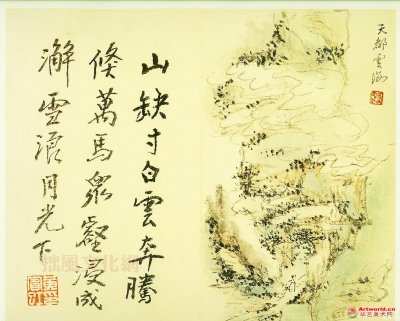 天都雲海
山缺寸白雲奔騰
倏萬馬眾壑浸成
澥雪浪月光下
拙風文化網
Artworld.cn